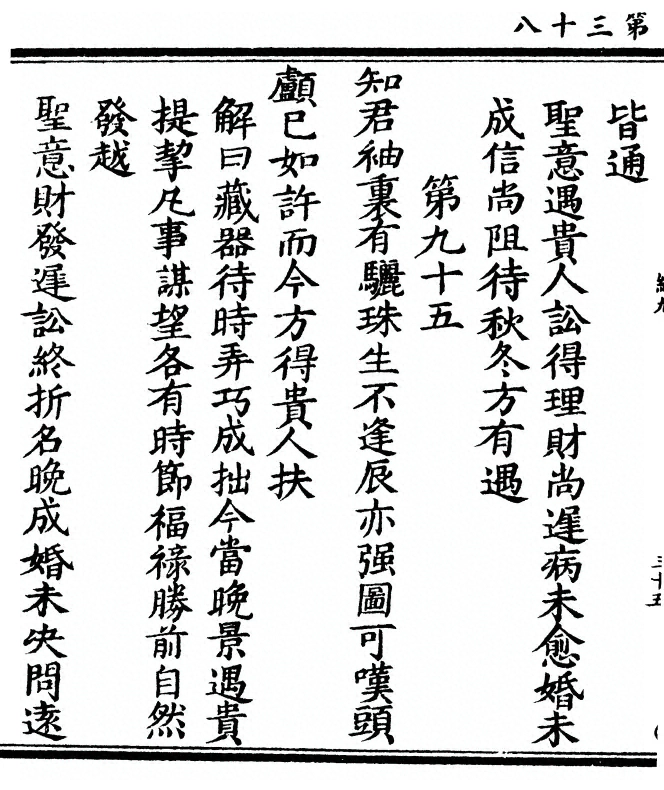 第三十八
三十五
皆通
聖意遇貴人訟得理財尚遲病未愈婚未
成信尚阻待秋冬方有遇
第九十五
知君袖裏有驪珠生不逢辰亦强圖可嘆頭
顱已如許而今方得貴人扶
解曰藏器待時弄巧成拙今當晚景遇貴
提挈凡事謀望各有時節福祿勝前自然
發越
聖意財發遲訟終折名晚成婚未央問遠